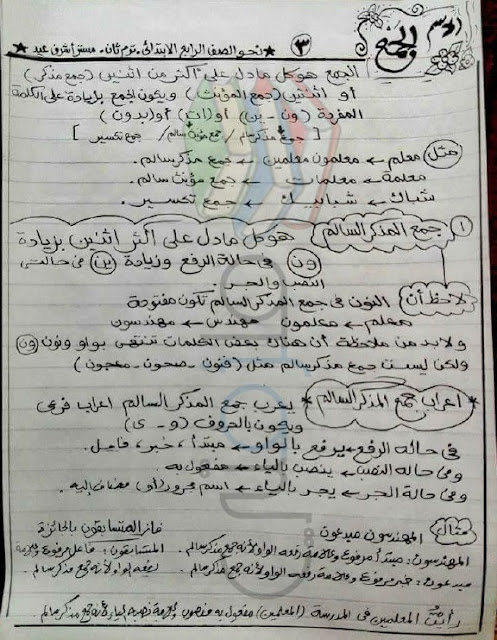 الاسم الجمع
٣
★ نحو الصف الرابع الابتدائى - ترم ثان - مستر أشرف عيد ★
الجمع هو كل ما دل على أكثر من اثنين (جمع مذكر)
أو اثنتين (جمع المؤنث) ويكون الجمع بزيادة على الكلمة
المفردة (ون - ين) أو (ات) أو (بدون)
[ جمع مذكر سالم / جمع مؤنث سالم / جمع تكسير ]
مثل معلم ← معلمون معلمين ← جمع مذكر سالم.
معلمة ← معلمات ← جمع مؤنث سالم.
شباك ← شبابيك ← جمع تكسير.
١ جمع المذكر السالم هو كل ما دل على أكثر اثنين بزيادة
ون فى حالة الرفع وزيادة ين فى حالتى
النصب والجر.
لاحظ أن النون فى جمع المذكر السالم تكون مفتوحة
معلم ← معلمون مهندس ← مهندسون
ولابد من ملاحظة أن هناك بعض الكلمات تنتهى بواو ونون ون
ولكن ليست جمع مذكر سالم مثل (فنون - صحون - معجون)
اعراب جمع المذكر السالم يعرب جمع المذكر السالم اعراب فرعى
ويكون بالحروف (و - ى)
فى حالة الرفع ← يرفع بالواو ← مبتدأ، خبر، فاعل.
وفى حالة النصب ← ينصب بالياء ← مفعول به.
وفى حالة الجر ← يجر بالياء ← اسم مجرور (أو) مضاف إليه.
مثال المهندسون مبدعون فاز المتسابقون بالجائزة
المهندسون: مبتدأ مرفوع وعلامة رفعه الواو لأنه جمع مذكر سالم. المتسابقون: فاعل مرفوع وعلامة
مبدعون: خبر مرفوع وعلامة رفعه الواو لأنه جمع مذكر سالم. رفعه الواو لأنه جمع مذكر سالم.
رأيتُ المعلمين فى المدرسة (المعلمين) مفعول به منصوب وعلامة نصبه الياء لأنه جمع مذكر سالم